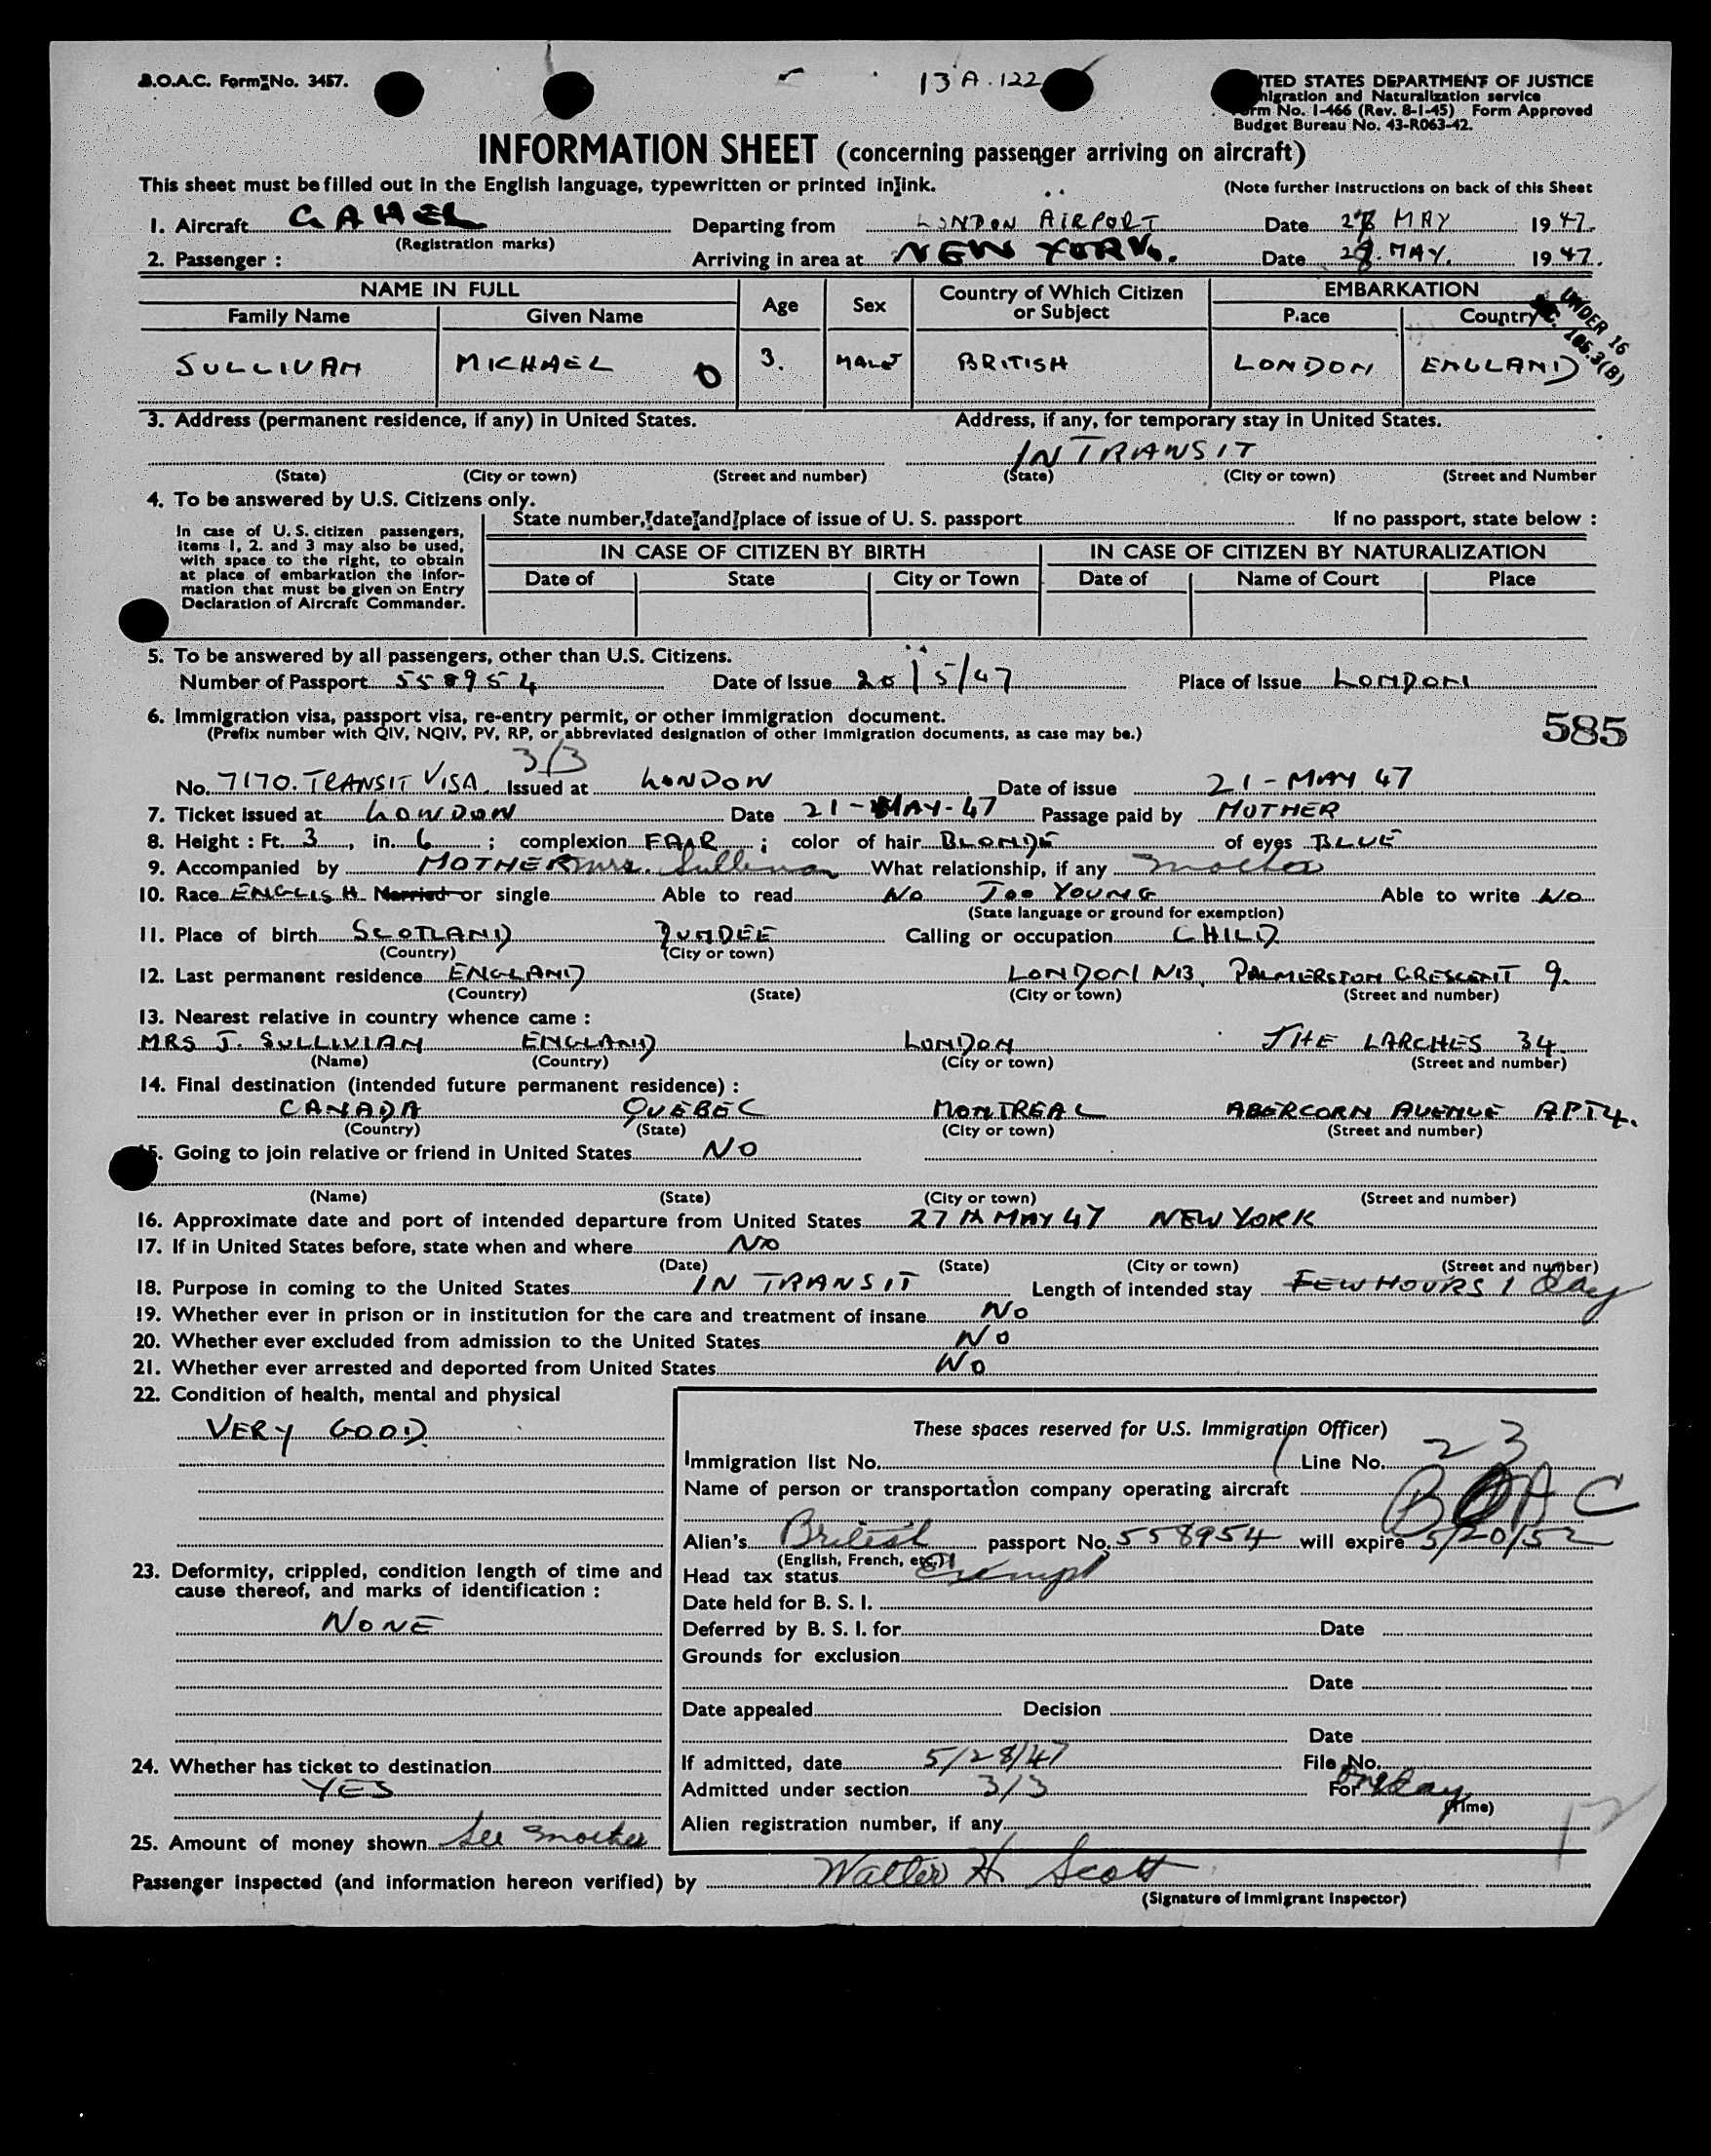 B.O.A.C. Form No. 3457.
13 A. 122
UNITED STATES DEPARTMENT OF JUSTICE
Immigration and Naturalization service
Form No. 1-466 (Rev. 8-1-45) Form Approved
Budget Bureau No. 43-R063-42.
INFORMATION SHEET (concerning passenger arriving on aircraft)
This sheet must be filled out in the English language, typewritten or printed in ink. (Note further instructions on back of this Sheet
1. Aircraft GAHEL Departing from LONDON AIRPORT Date MAY 1947.
(Registration marks)
2. Passenger : Arriving in area at NEW YORK. Date MAY. 1947.
NAME IN FULL Age Sex Country of Which Citizen or Subject EMBARKATION
Family Name Given Name Place Country
UNDER 16
106.3(B)
SULLIVAN MICHAEL 0 3. MALE BRITISH LONDON ENGLAND
3. Address (permanent residence, if any) in United States. Address, if any, for temporary stay in United States.
IN TRANSIT
(State) (City or town) (Street and number) (State) (City or town) (Street and Number
4. To be answered by U.S. Citizens only.
State number, date and place of issue of U. S. passport If no passport, state below :
In case of U. S. citizen passengers,
items 1, 2. and 3 may also be used,
with space to the right, to obtain
at place of embarkation the infor-
mation that must be given on Entry
Declaration of Aircraft Commander.
IN CASE OF CITIZEN BY BIRTH IN CASE OF CITIZEN BY NATURALIZATION
Date of State City or Town Date of Name of Court Place
5. To be answered by all passengers, other than U.S. Citizens.
Number of Passport 558954 Date of Issue 20/5/47 Place of Issue LONDON
6. Immigration visa, passport visa, re-entry permit, or other immigration document.
(Prefix number with QIV, NQIV, PV, RP, or abbreviated designation of other immigration documents, as case may be.)
585
3/3
No. 7170. TRANSIT VISA. Issued at LONDON Date of issue 21-MAY 47
7. Ticket issued at LONDON Date 21-MAY-47 Passage paid by MOTHER
8. Height : Ft. 3, in. 6 ; complexion FAIR ; color of hair BLONDE of eyes BLUE
9. Accompanied by MOTHER Mrs. Sullivan What relationship, if any mother
10. Race ENGLISH Married or single Able to read No TOO YOUNG Able to write No
(State language or ground for exemption)
11. Place of birth SCOTLAND DUNDEE Calling or occupation CHILD
(Country) (City or town)
12. Last permanent residence ENGLAND LONDON N13, PALMERSTON CRESCENT 9.
(Country) (State) (City or town) (Street and number)
13. Nearest relative in country whence came :
MRS J. SULLIVIAN ENGLAND LONDON THE LARCHES 34.
(Name) (Country) (City or town) (Street and number)
14. Final destination (intended future permanent residence) :
CANADA QUEBEC MONTREAL ABERCORN AVENUE APT4.
(Country) (State) (City or town) (Street and number)
15. Going to join relative or friend in United States NO
(Name) (State) (City or town) (Street and number)
16. Approximate date and port of intended departure from United States 27th MAY 47 NEW YORK
17. If in United States before, state when and where NO
(Date) (State) (City or town) (Street and number)
18. Purpose in coming to the United States IN TRANSIT Length of intended stay FEW HOURS 1 day
19. Whether ever in prison or in institution for the care and treatment of insane No
20. Whether ever excluded from admission to the United States No
21. Whether ever arrested and deported from United States No
22. Condition of health, mental and physical
VERY GOOD
These spaces reserved for U.S. Immigration Officer)
Immigration list No. Line No. 23
Name of person or transportation company operating aircraft BOAC
Alien's British passport No. 558954 will expire 5/20/52
(English, French, etc.)
23. Deformity, crippled, condition length of time and
cause thereof, and marks of identification :
NONE
Head tax status Exempt
Date held for B. S. I.
Deferred by B. S. I. for Date
Grounds for exclusion
Date
Date appealed Decision
Date
24. Whether has ticket to destination
YES
If admitted, date 5/28/47 File No.
Admitted under section 3/3 For One day
(Time)
Alien registration number, if any
12
25. Amount of money shown See mother
Passenger inspected (and information hereon verified) by Walter H Scott
(Signature of Immigrant Inspector)